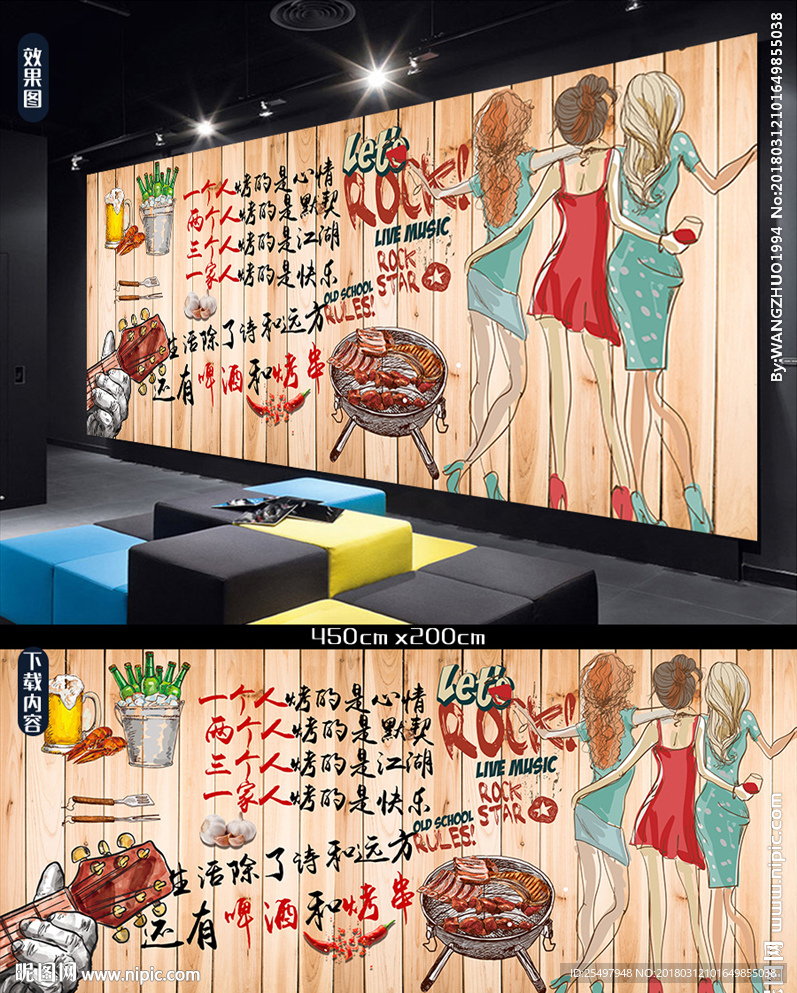 效果图
By:WANGZHUO1994 No:20180312101649855038
一个人烤的是心情
两个人烤的是默契
三个人烤的是江湖
一家人烤的是快乐
生活除了诗和远方
还有啤酒和烤串
Let's
ROCK!
LIVE MUSIC
ROCK
STAR
OLD SCHOOL
RULES!
450cm x200cm
下载内容
一个人烤的是心情
两个人烤的是默契
三个人烤的是江湖
一家人烤的是快乐
生活除了诗和远方
还有啤酒和烤串
Let's
ROCK!
LIVE MUSIC
ROCK
STAR
OLD SCHOOL
RULES!
昵图网 www.nipic.com
昵图网 www.nipic.com
ID:25497948 NO:20180312101649855038